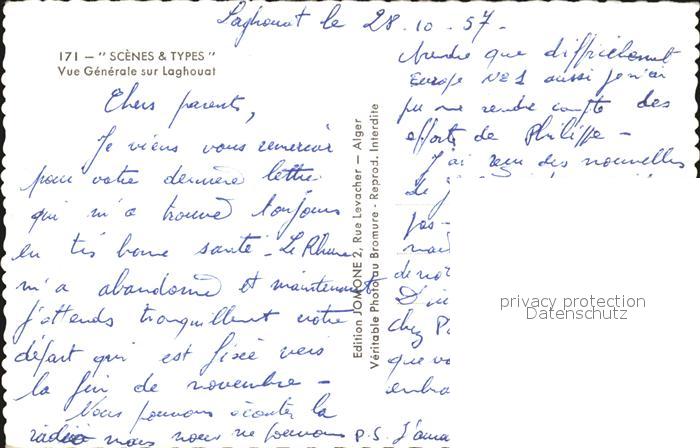 Laghouat le 28-10-57-
171 — " SCÈNES & TYPES "
Vue Générale sur Laghouat
Chers parents,
Je viens vous remercier
pour votre dernière lettre
qui m'a trouvé toujours
en très bonne santé - Le Rhume
m'a abandonné et maintenant
j'attends tranquillement notre
départ qui est fixée vers
la fin de novembre -
Nous pouvons écouter la
radio mais nous ne pouvons
Edition JOMONE 2, Rue Levacher — Alger
Véritable Photo au Bromure - Reprod. Interdite
prendre que difficilement
Europe N°1 aussi je n'ai
pu me rendre compte des
efforts de Philippe -
J'ai reçu des nouvelles
de
pas-
de
D'
chez
que
P.S. J'
privacy protection
Datenschutz